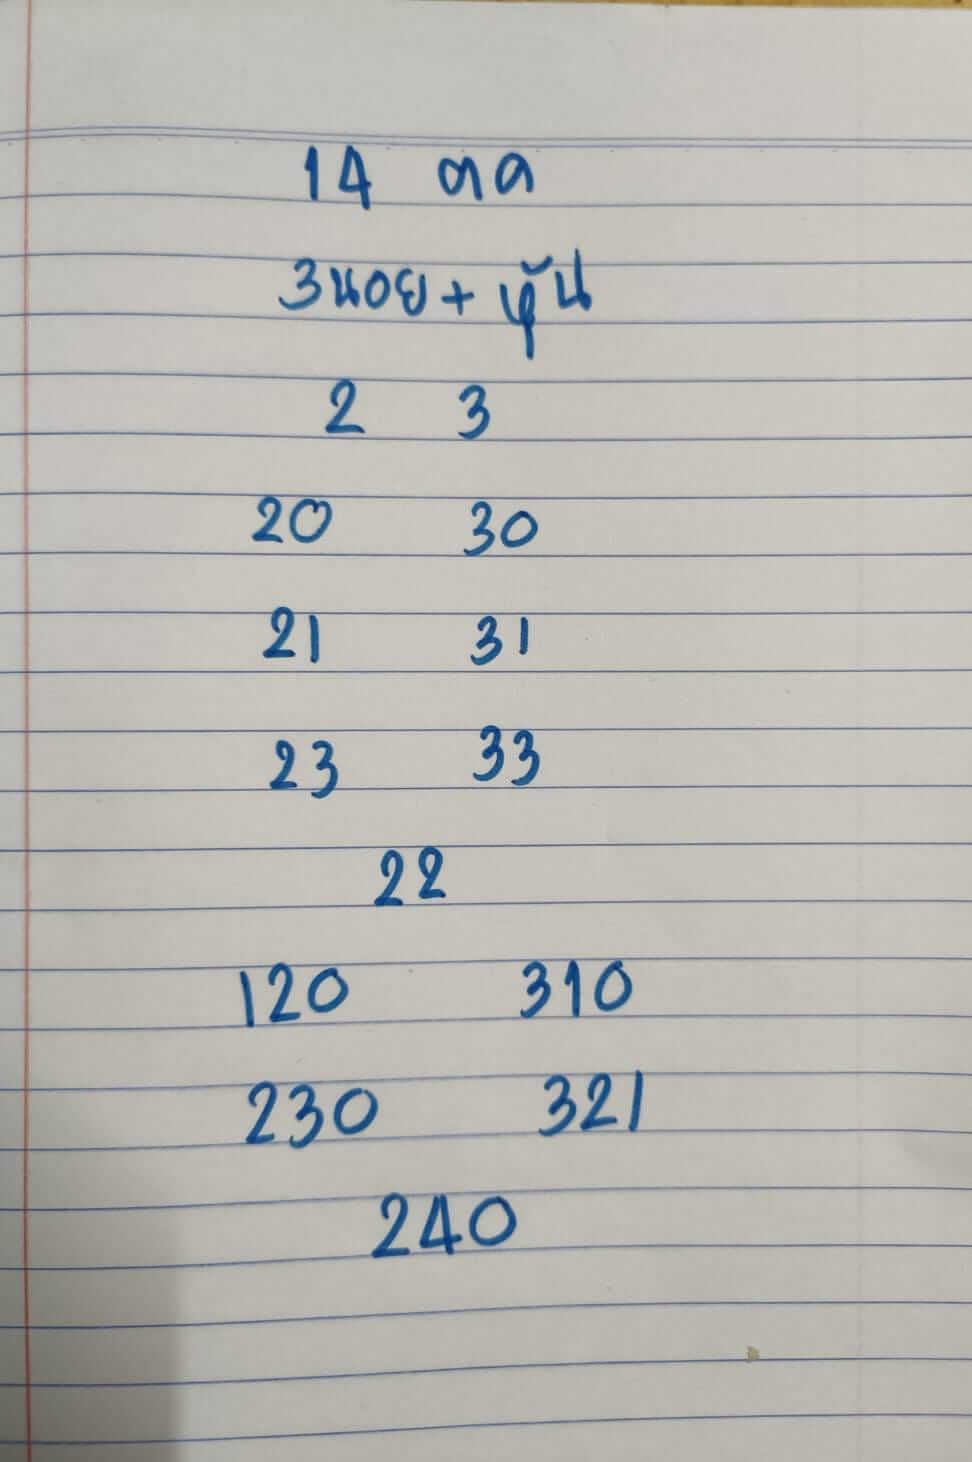 14 ตค
3นอย + หุ้น
2 3
20 30
21 31
23 33
22
120 310
230 321
240